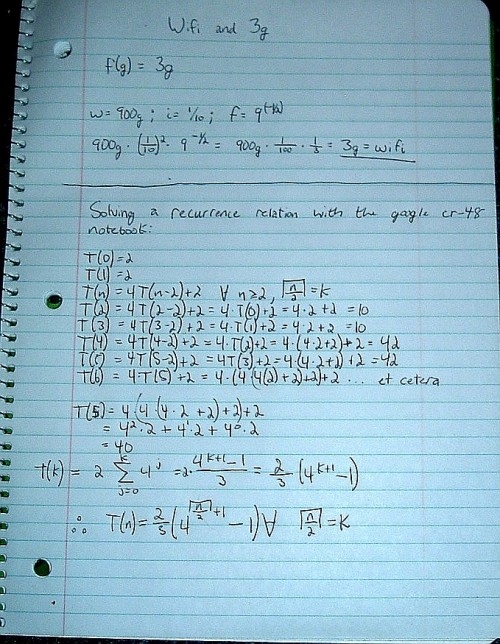 Wifi and 3g
f(g) = 3g
w = 900g ; i = 1/10 ; f = 9^(-1/2)
900g · (1/10)² · 9^-1/2 = 900g · 1/100 · 1/3 = 3g = wifi
Solving a recurrence relation with the google cr-48
notebook:
T(0) = 2
T(1) = 2
T(n) = 4T(n-2)+2 ∀ n≥2, ⌈n/2⌉ = K
T(2) = 4T(2-2)+2 = 4·T(0)+2 = 4·2+2 = 10
T(3) = 4T(3-2)+2 = 4·T(1)+2 = 4·2+2 = 10
T(4) = 4T(4-2)+2 = 4·T(2)+2 = 4·(4·2+2)+2 = 42
T(5) = 4T(5-2)+2 = 4T(3)+2 = 4(4·2+2)+2 = 42
T(6) = 4·T(5)+2 = 4·(4(4(2)+2)+2)+2 ... et cetera
T(5) = 4·(4·(4·2+2)+2)+2
= 4²·2 + 4¹·2 + 4⁰·2
= 40
T(k) = 2 Σ_{j=0}^{k} 4^j = 2· (4^(k+1) - 1)/3 = 2/3 · (4^(k+1) - 1)
∴ T(n) = 2/3 (4^(⌈n/2⌉+1) - 1) ∀ ⌈n/2⌉ = K